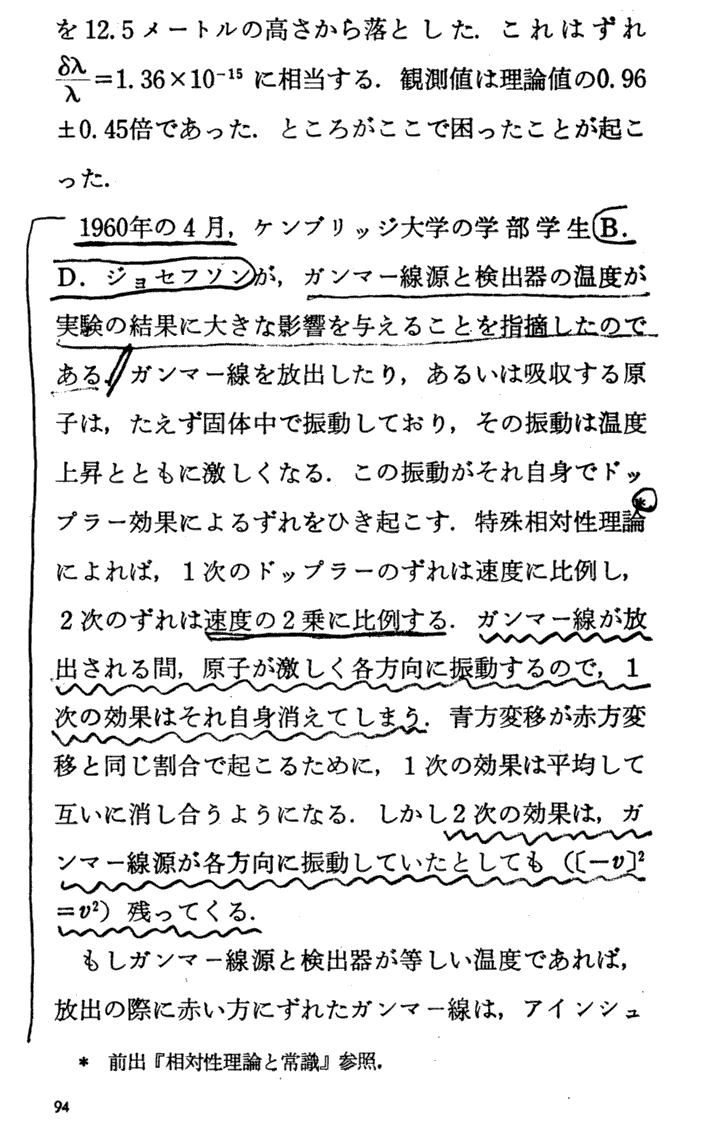 を12.5メートルの高さから落とした．これはずれ
δλ/λ=1.36×10⁻¹⁵ に相当する．観測値は理論値の0.96
±0.45倍であった．ところがここで困ったことが起こ
った．
1960年の4月，ケンブリッジ大学の学部学生B．
D．ジョセフソンが，ガンマー線源と検出器の温度が
実験の結果に大きな影響を与えることを指摘したので
ある．ガンマー線を放出したり，あるいは吸収する原
子は，たえず固体中で振動しており，その振動は温度
上昇とともに激しくなる．この振動がそれ自身でドッ
プラー効果によるずれをひき起こす．特殊相対性理論*
によれば，1次のドップラーのずれは速度に比例し，
2次のずれは速度の2乗に比例する．ガンマー線が放
出される間，原子が激しく各方向に振動するので，1
次の効果はそれ自身消えてしまう．青方変移が赤方変
移と同じ割合で起こるために，1次の効果は平均して
互いに消し合うようになる．しかし2次の効果は，ガ
ンマー線源が各方向に振動していたとしても（〔−v〕²
=v²）残ってくる．
もしガンマー線源と検出器が等しい温度であれば，
放出の際に赤い方にずれたガンマー線は，アインシュ
* 前出『相対性理論と常識』参照．
94